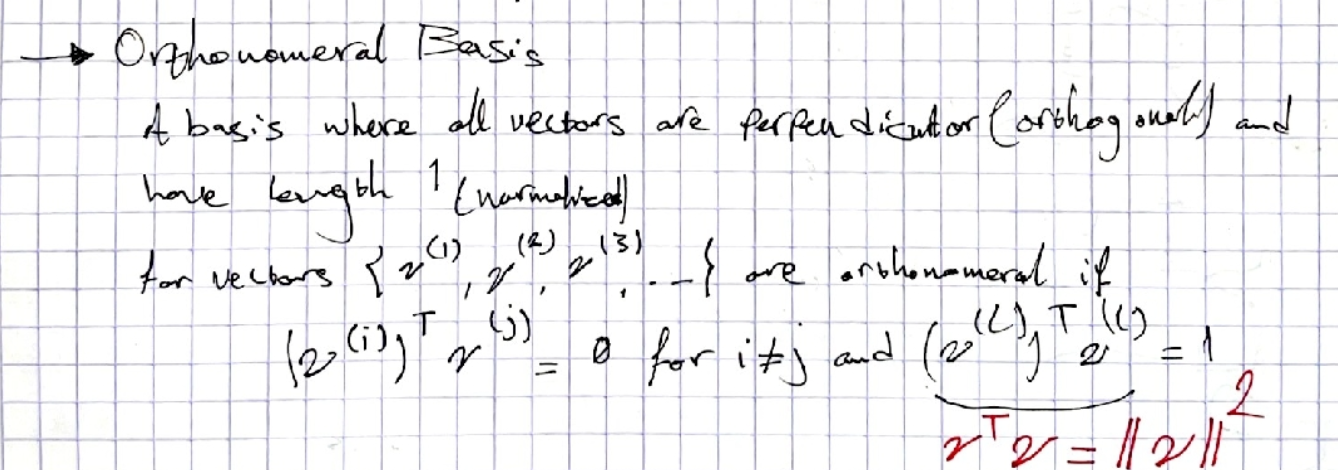 → Orthonomeral Basis
A basis where all vectors are perpendicutor (orthogonal) and
have length 1 (normalized)
for vectors { v^(1), v^(2), v^(3), ... } are orthonomeral if
(v^(i))^T v^(j) = 0 for i≠j and (v^(i))^T v^(i) = 1
v^T v = ||v||^2